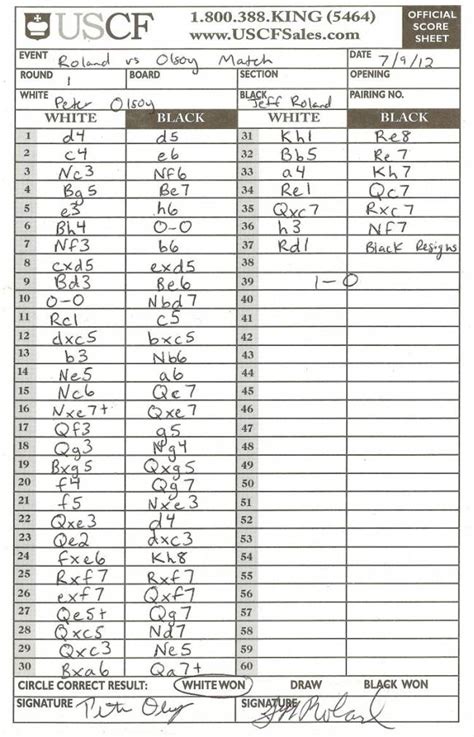 USCF 1.800.388.KING (5464) www.USCFSales.com OFFICIAL SCORE SHEET
EVENT Roland vs Olsoy Match DATE 7/9/12
ROUND 1 BOARD SECTION OPENING
WHITE Peter Olsoy BLACK Jeff Roland PAIRING NO.
WHITE BLACK WHITE BLACK
1 d4 d5 31 Kh1 Re8
2 c4 e6 32 Bb5 Re7
3 Nc3 Nf6 33 a4 Kh7
4 Bg5 Be7 34 Re1 Qc7
5 e3 h6 35 Qxc7 Rxc7
6 Bh4 O-O 36 h3 Nf7
7 Nf3 b6 37 Rd1 Black Resigns
8 cxd5 exd5 38
9 Bd3 Be6 39 1-0
10 O-O Nbd7 40
11 Rc1 c5 41
12 dxc5 bxc5 42
13 b3 Nb6 43
14 Ne5 a6 44
15 Nc6 Qc7 45
16 Nxe7+ Qxe7 46
17 Qf3 g5 47
18 Qg3 Ng4 48
19 Bxg5 Qxg5 49
20 f4 Qg7 50
21 f5 Nxe3 51
22 Qxe3 d4 52
23 Qe2 dxc3 53
24 fxe6 Kh8 54
25 Rxf7 Rxf7 55
26 exf7 Qxf7 56
27 Qe5+ Qg7 57
28 Qxc5 Nd7 58
29 Qxc3 Ne5 59
30 Bxa6 Qa7+ 60
CIRCLE CORRECT RESULT: WHITE WON DRAW BLACK WON
SIGNATURE SIGNATURE